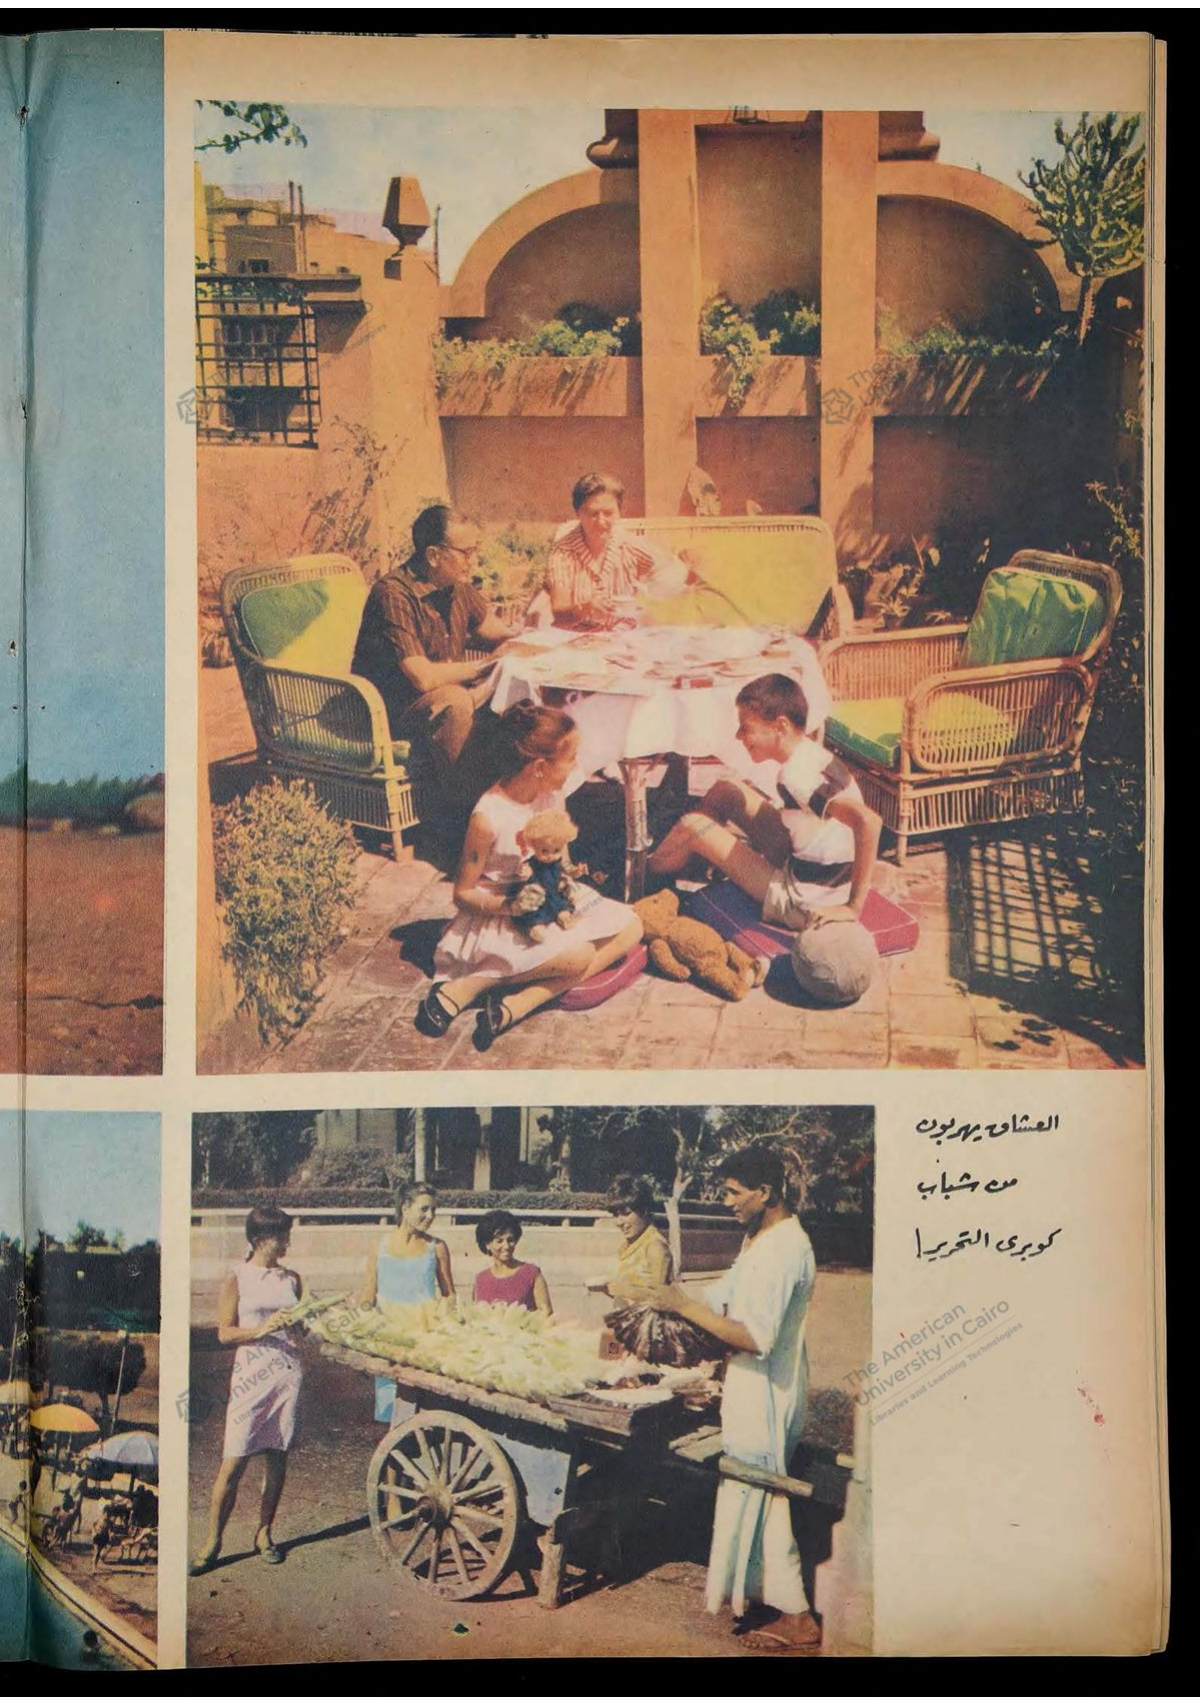 العشاق يهربون
من شباب
كوبرى التحرير!
The American
University in Cairo
Libraries and Learning Technologies